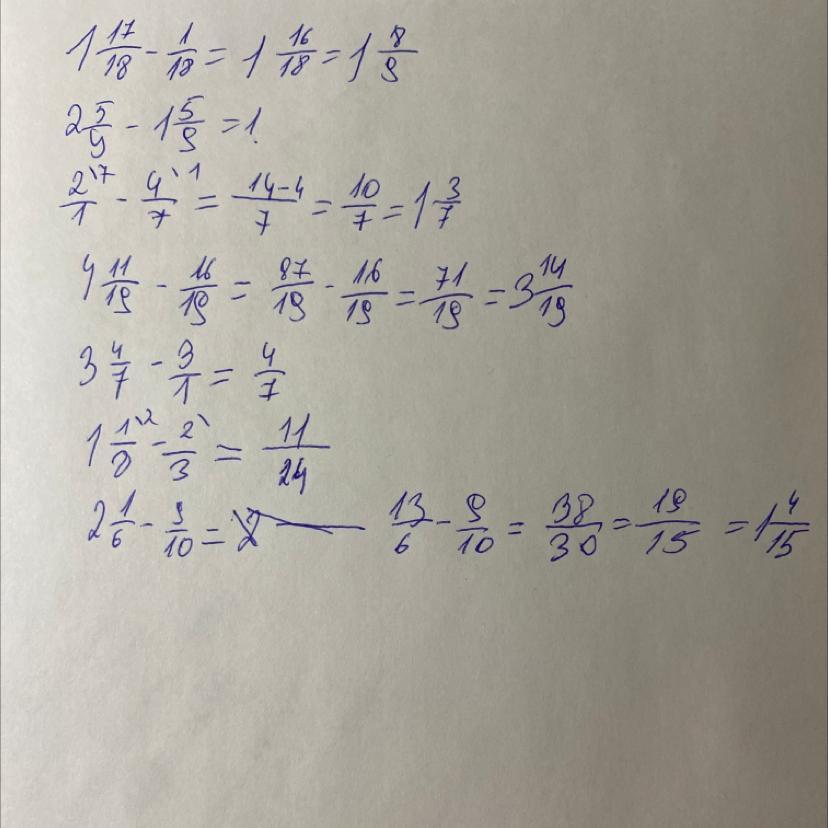 1 17/18 - 1/18 = 1 16/18 = 1 8/9
2 5/9 - 1 5/9 = 1.
2\7/1 - 4\1/7 = 14-4/7 = 10/7 = 1 3/7
4 11/19 - 16/19 = 87/19 - 16/19 = 71/19 = 3 14/19
3 4/7 - 3/1 = 4/7
1 1\2/8 - 2\/3 = 11/24
2 1/6 - 9/10 = 13/6 - 9/10 = 38/30 = 19/15 = 1 4/15